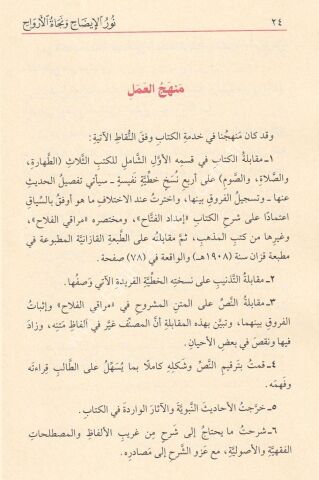 ٢٤ نُورُ الإِيضَاحِ وَنَجَاةُ الأَرْوَاحِ
مَنهَجُ العَمَلِ
وقد كان مَنهجُنا في خدمةِ الكتابِ وفقَ النُّقاطِ الآتيةِ:
١ـ مقابلةُ الكتابِ في قسمِه الأوَّلِ الشَّاملِ للكتبِ الثَّلاثِ (الطَّهارةِ،
والصَّلاةِ، والصَّومِ) على أربعِ نُسَخٍ خطيَّةٍ نَفيسةٍ ـ سيأتي تفصيلُ الحديثِ
عنها ـ وتسجيلُ الفروقِ بينها، واخترتُ عندَ الاختلافِ ما هو أوفقُ بالسِّياقِ
اعتمادًا على شرحِ الكتابِ «إمدادِ الفتَّاحِ»، ومختصرِه «مراقي الفلاح»،
وغيرِها من كتبِ المذهبِ، ثمَّ مقابلتُه على الطَّبعةِ القازانيَّةِ المطبوعةِ في
مطبعةِ قزان سنة (١٩٠٨هـ) والواقعة في (٧٨) صفحة.
٢ـ مقابلةُ التَّذنيبِ على نسختِه الخطيَّةِ الفريدةِ الآتي وَصفُها.
٣ـ مقابلةُ النَّصِّ على المتنِ المشروحِ في «مراقي الفلاح» وإثباتُ
الفروقِ بينهما، وتبيَّن بهذه المقابلةِ أنَّ المصنِّفَ غيَّر في ألفاظِ مَتنِه، وزادَ
فيها ونقصَ في بعضِ الأحيانِ.
٤ـ قمتُ بترقيمِ النَّصِّ وشَكلِه كاملًا بما يُسهِّلُ على الطَّالبِ قراءتَه
وفَهمَه.
٥ـ خرَّجتُ الأحاديثَ النبويَّةَ والآثارَ الواردةَ في الكتابِ.
٦ـ شرحتُ ما يحتاجُ إلى شرحٍ من غريبِ الألفاظِ والمصطلحاتِ
الفقهيَّةِ والأصوليَّةِ، مع عَزوِ الشَّرحِ إلى مَصادرِه.